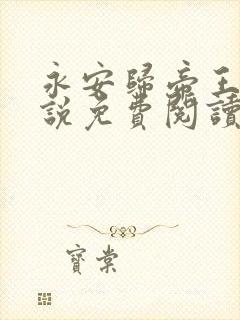 永安歸帝王
說免費閱讀
寶棠